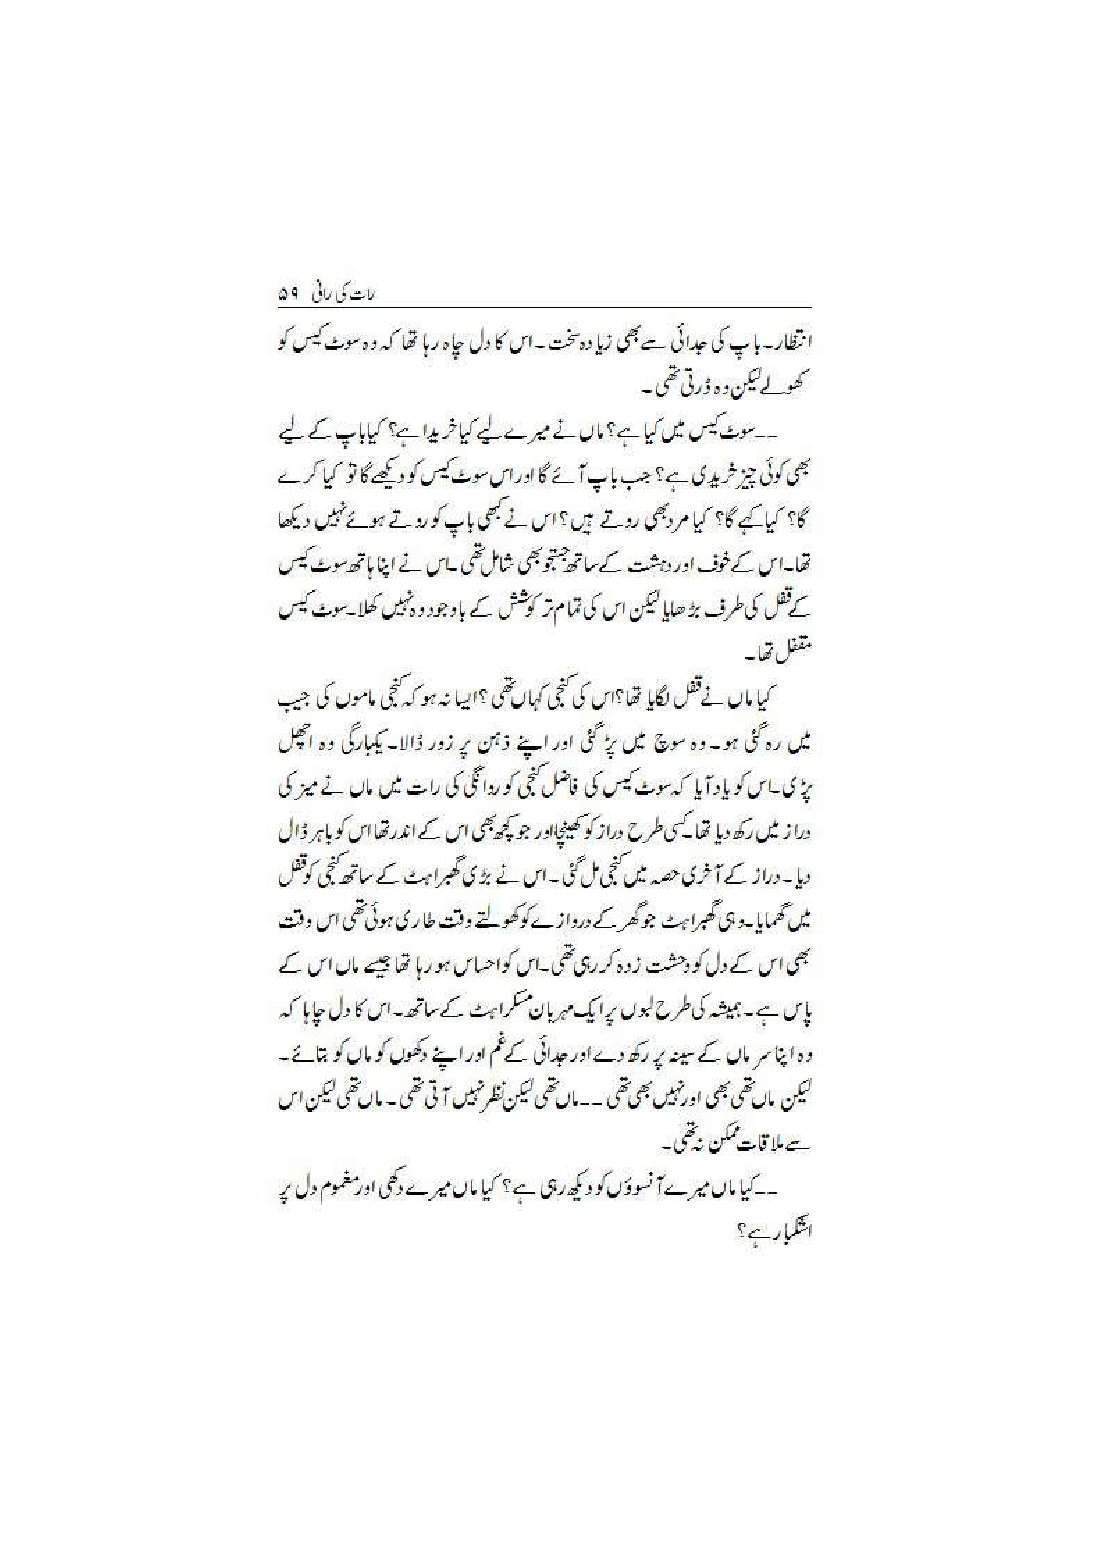 رات کی رانی ۵۹
انتظار۔ باپ کی جدائی سے بھی زیادہ سخت۔ اس کا دل چاہ رہا تھا کہ وہ سوٹ کیس کو
کھولے لیکن وہ ڈرتی تھی۔
۔۔سوٹ کیس میں کیا ہے؟ ماں نے میرے لیے کیا خریدا ہے؟ کیا باپ کے لیے
بھی کوئی چیز خریدی ہے؟ جب باپ آئے گا اور اس سوٹ کیس کو دیکھے گا تو کیا کرے
گا؟ کیا کہے گا؟ کیا مرد بھی روتے ہیں؟ اس نے کبھی باپ کو روتے ہوئے نہیں دیکھا
تھا۔ اس کے خوف اور دہشت کے ساتھ جستجو بھی شامل تھی۔ اس نے اپنا ہاتھ سوٹ کیس
کے قفل کی طرف بڑھایا لیکن اس کی تمام تر کوشش کے باوجود وہ نہیں کھلا۔ سوٹ کیس
مقفل تھا۔
کیا ماں نے قفل لگایا تھا؟ اس کی کنجی کہاں تھی؟ ایسا نہ ہو کہ کنجی ماموں کی جیب
میں رہ گئی ہو۔ وہ سوچ میں پڑ گئی اور اپنے ذہن پر زور ڈالا۔ یکبارگی وہ اچھل
پڑی۔ اس کو یاد آیا کہ سوٹ کیس کی فاضل کنجی کو روانگی کی رات میں ماں نے میز کی
دراز میں رکھ دیا تھا۔ کسی طرح دراز کو کھینچا اور جو کچھ بھی اس کے اندر تھا اس کو باہر ڈال
دیا۔ دراز کے آخری حصہ میں کنجی مل گئی۔ اس نے بڑی گھبراہٹ کے ساتھ کنجی کو قفل
میں گھمایا۔ وہی گھبراہٹ جو گھر کے دروازے کو کھولتے وقت طاری ہوئی تھی اس وقت
بھی اس کے دل کو وحشت زدہ کر رہی تھی۔ اس کو احساس ہو رہا تھا جیسے ماں اس کے
پاس ہے۔ ہمیشہ کی طرح لبوں پر ایک مہربان مسکراہٹ کے ساتھ۔ اس کا دل چاہا کہ
وہ اپنا سر ماں کے سینہ پر رکھ دے اور جدائی کے غم اور اپنے دکھوں کو ماں کو بتائے۔
لیکن ماں تھی بھی اور نہیں بھی تھی۔۔ ماں تھی لیکن نظر نہیں آتی تھی۔ ماں تھی لیکن اس
سے ملاقات ممکن نہ تھی۔
۔۔کیا ماں میرے آنسوؤں کو دیکھ رہی ہے؟ کیا ماں میرے دکھی اور مغموم دل پر
اشکبار ہے؟